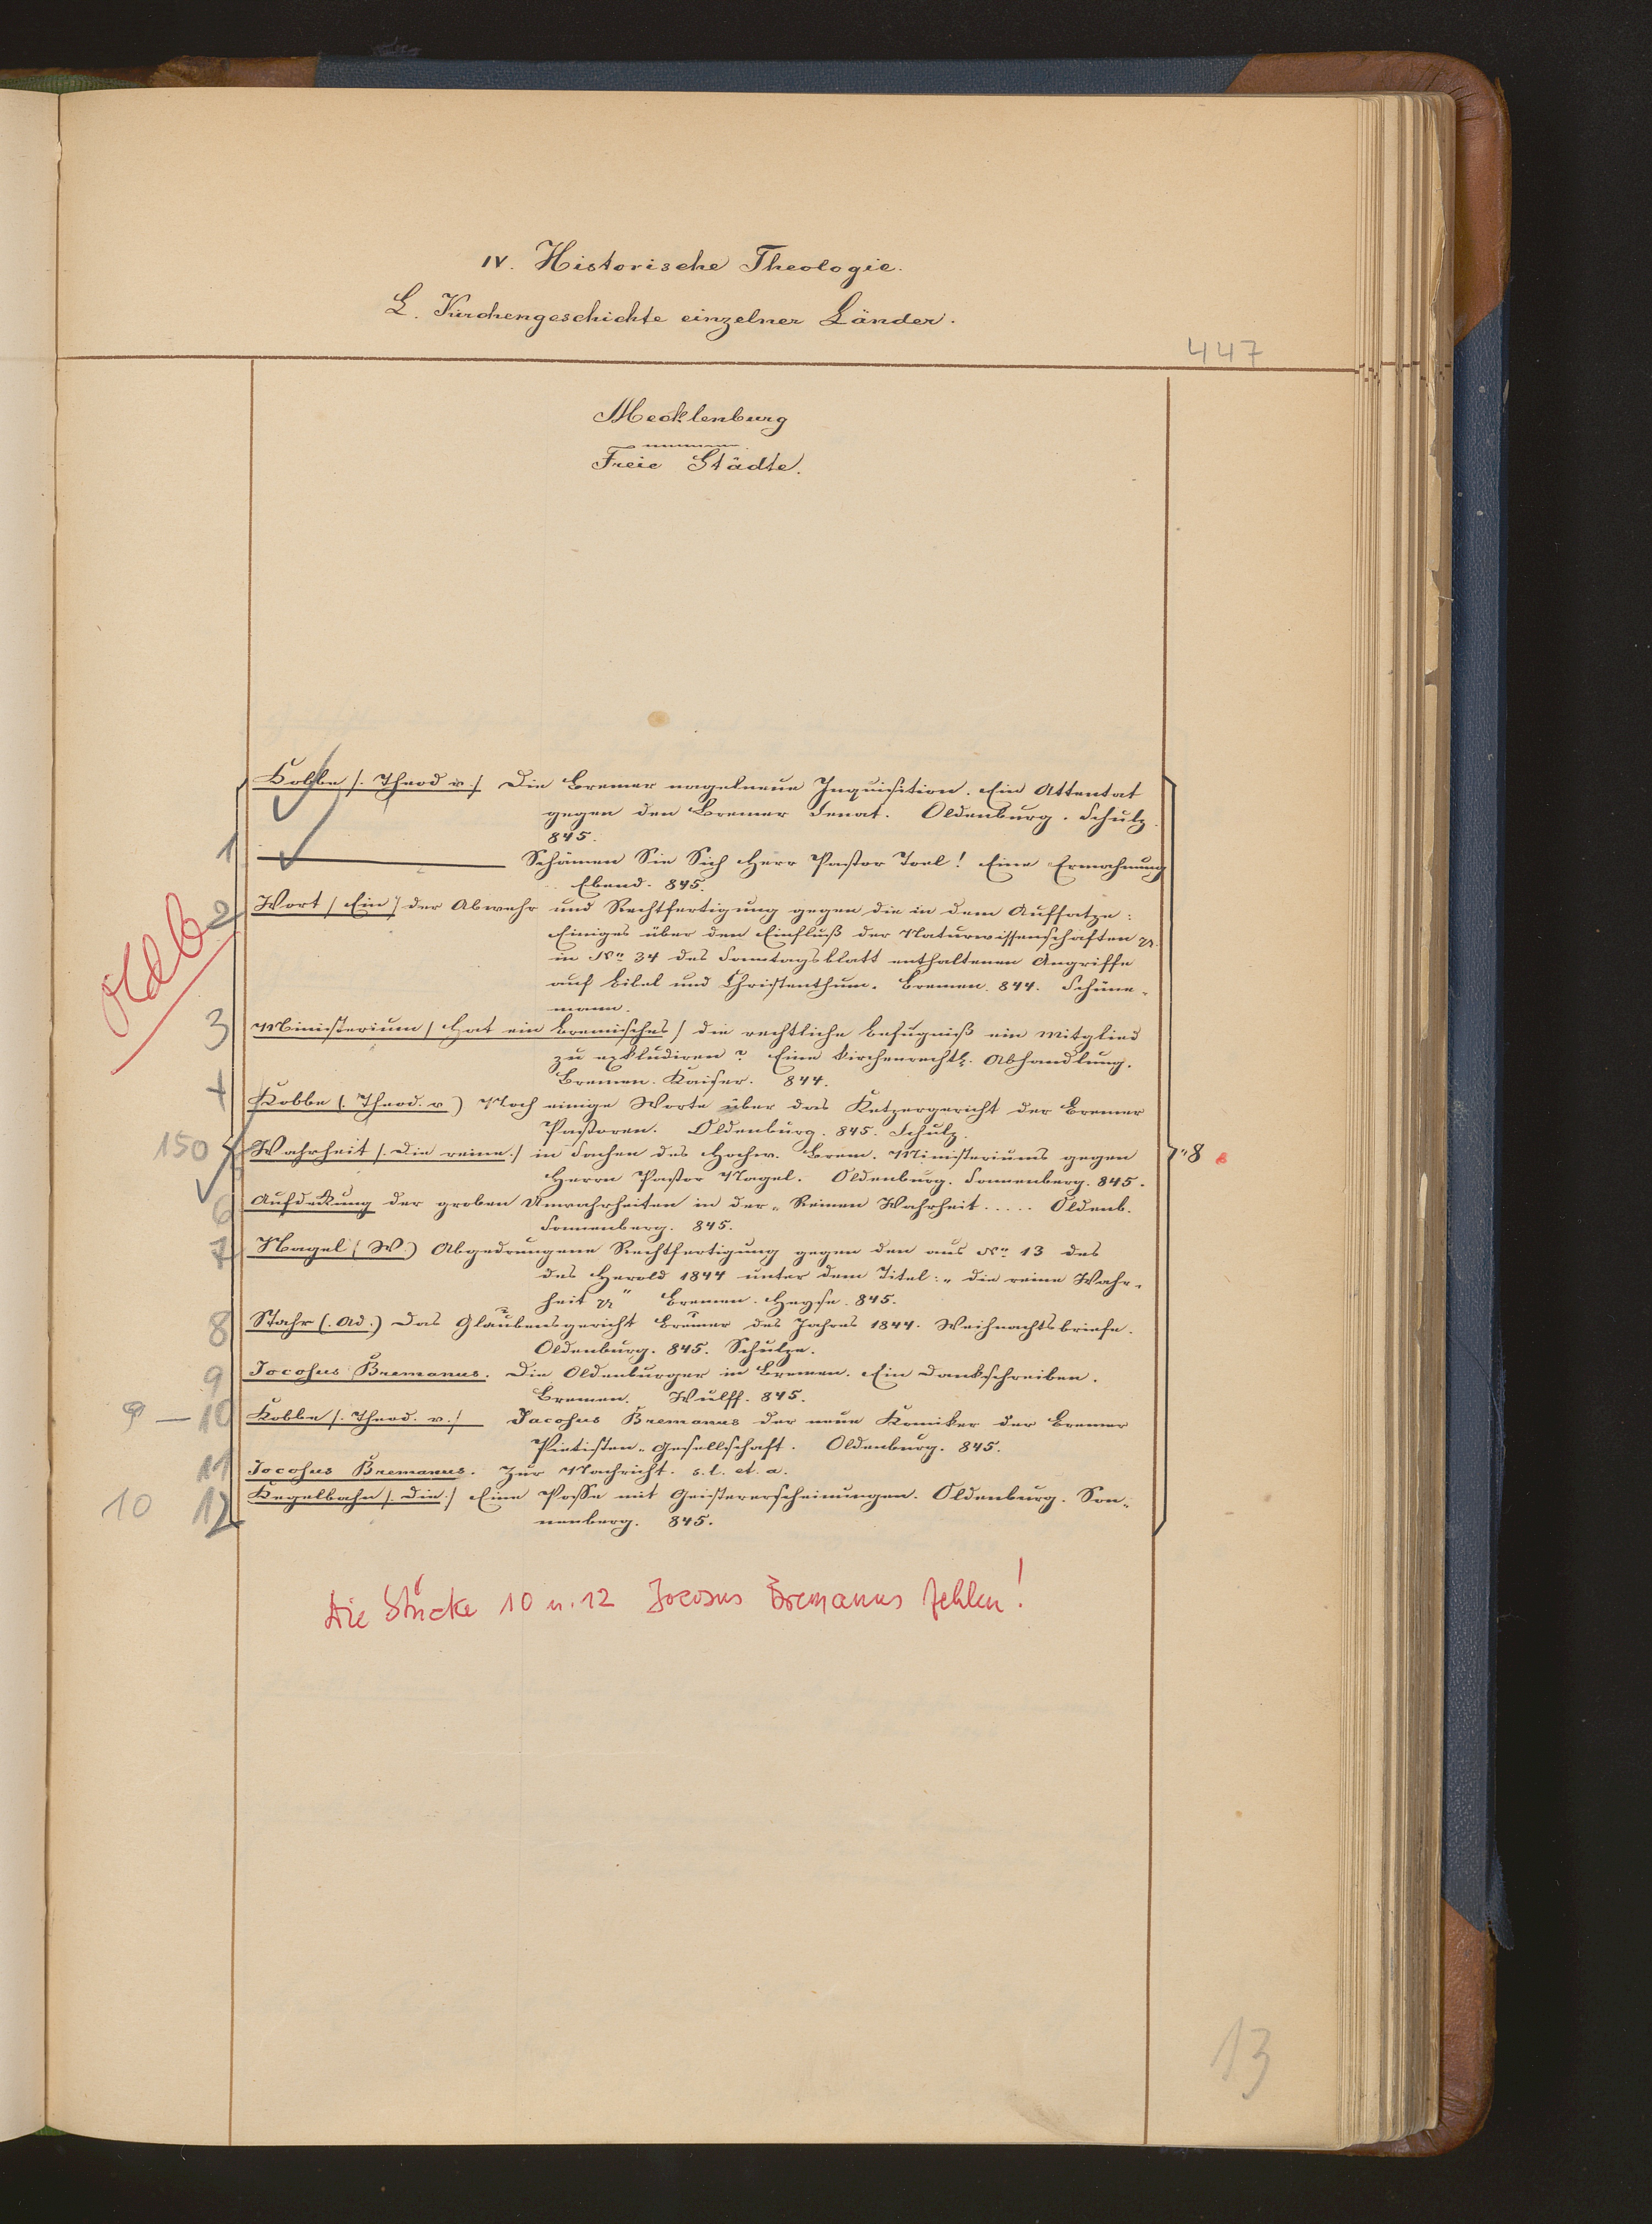 IV. Historische Theologie.
L. Kirchengeschichte einzelner Länder.
447
Mecklenburg
Freie Städte.
Kobbe /. Theod v./ Die Bremer nagelneue Inquisition. Ein Attentat
gegen den Bremer Senat. Oldenburg. Schulz.
845.
1 ——— Schämen Sie Sich Herr Pastor Toel! Eine Ermahnung
Ebend. 845.
Oldb
2 Wort / Ein / der Abwehr und Rechtfertigung gegen die in dem Aufsatze:
Einiges über den Einfluß der Naturwissenschaften
in No 34 des Sonntagsblatt enthaltenen Angriffe
auf Bibel und Christenthum. Bremen. 844. Schüne-
mann.
3 Ministerium / Hat ein bremisches / die rechtliche Befugniß ein Mitglied
zu excludiren? Eine kirchenrechtl. Abhandlung.
Bremen. Kaiser. 844.
4 Kobbe (. Theod. v.) Noch einige Worte über das Ketzergericht der Bremer
Pastoren. Oldenburg. 845. Schulz.
150 Wahrheit /. Die reine./ in Sachen des Hochw. Brem. Ministeriums gegen
Herrn Pastor Nagel. Oldenburg. Sonnenberg. 845.
8
6 Aufdekung der groben Unwahrheiten in der „Reinen Wahrheit ..... Oldenb.
Sonnenberg. 845.
7 Nagel (W.) Abgedrungene Rechtfertigung gegen den aus No 13 des
des Herold 1844 unter dem Titel: „die reine Wahr-
heit “ Bremen. Heyse. 845.
8 Stahr (. Ad.) Das Glaubensgericht Bremer des Jahres 1844. Weihnachtsbriefe.
Oldenburg. 845. Schulze.
9 Jocosus Bremanus. Die Oldenburger in Bremen. Ein Dankschreiben.
Bremen. Wülff. 845.
9 — 10 Kobbe /. Theod. v./ Jacosus Bremanus der neue Komiker der Bremer
Pietisten-Gesellschaft. Oldenburg. 845.
11 Jocosus Bremanus. Zur Nachricht. s. l. et. a.
10 12 Kegelbahn /. Die./ Eine Posse mit Geistererscheinungen. Oldenburg. Son-
nenberg. 845.
Die Stücke 10 u. 12 Jocosus Bremanus fehlen!
13